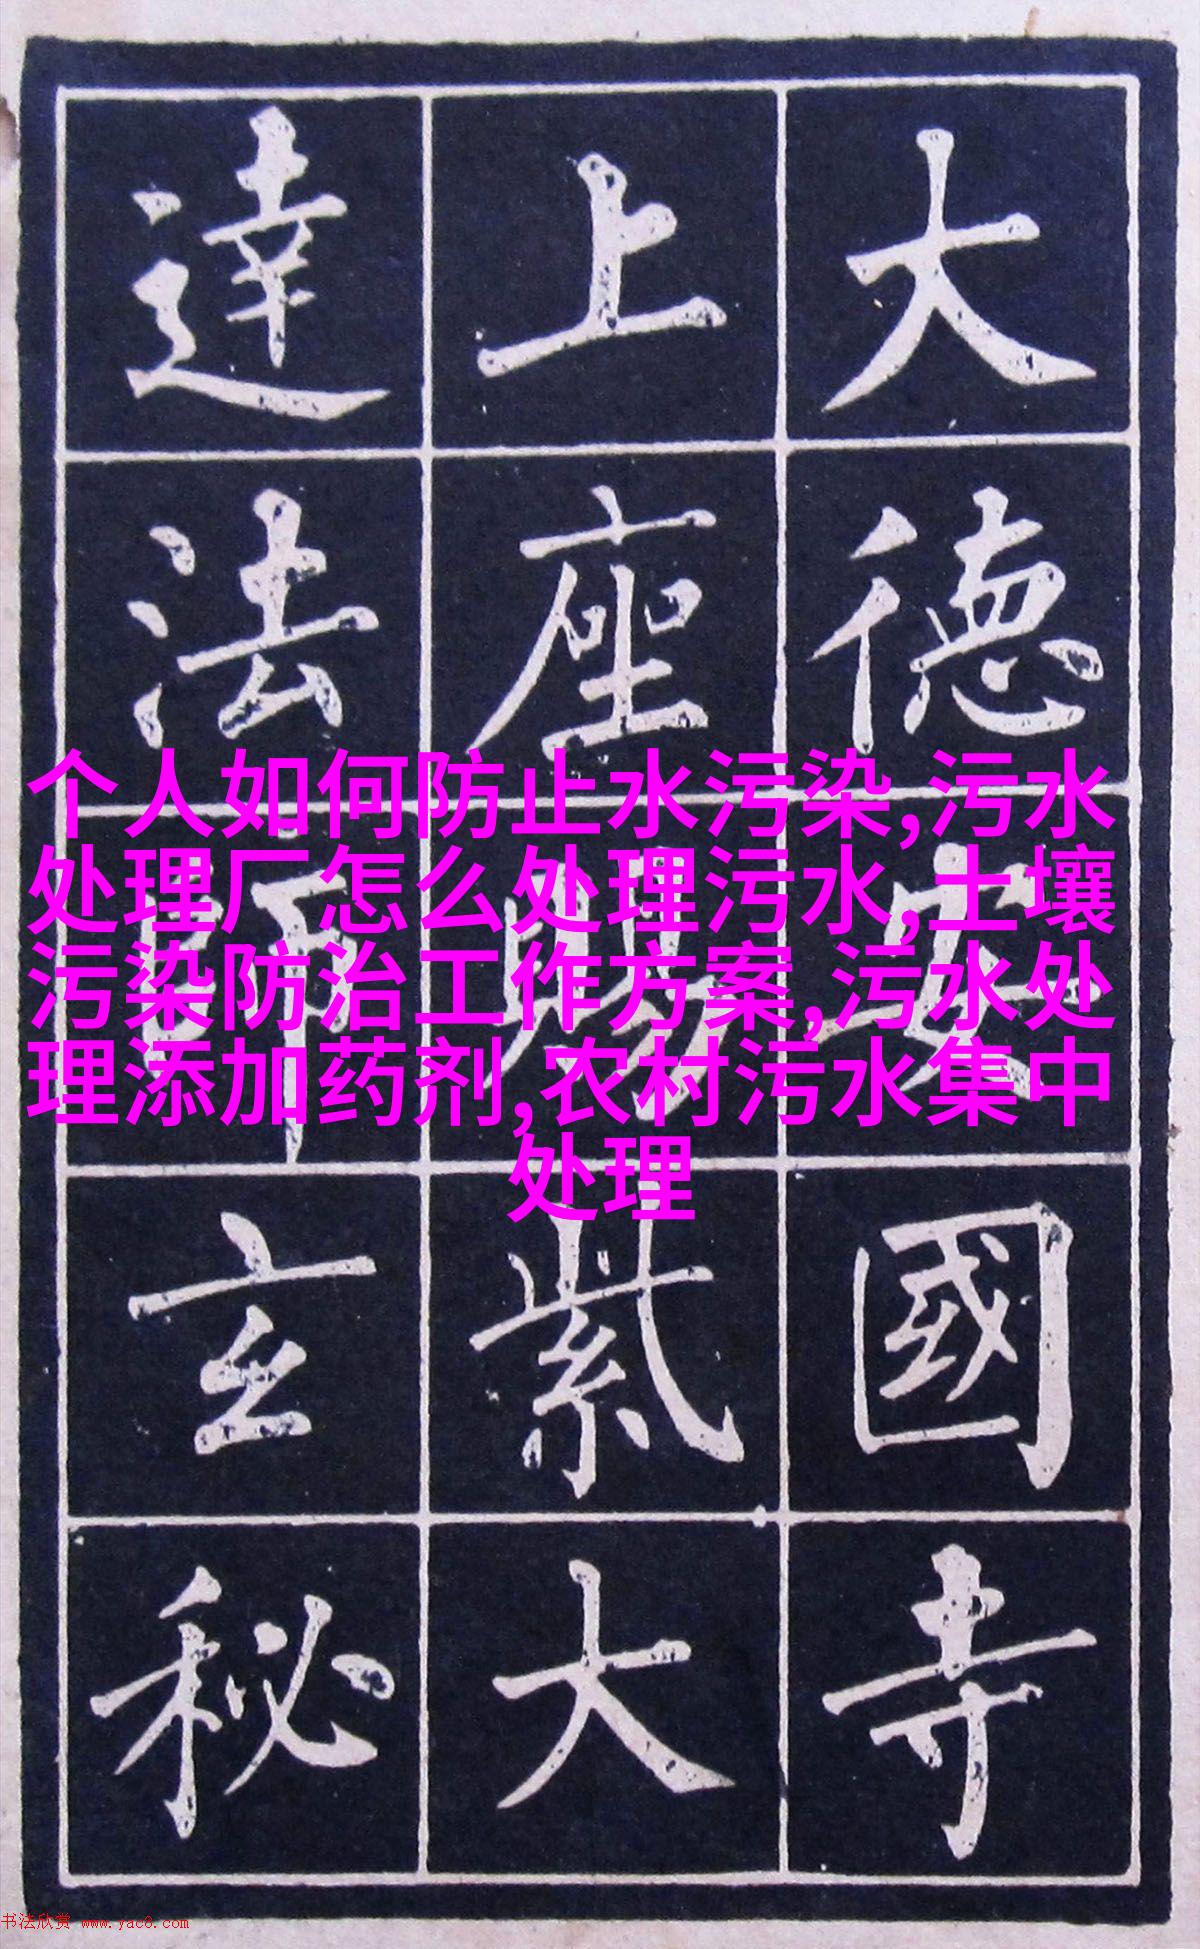 大德安國寺
上座賜紫大
達法師玄秘
个人如何防止水污染,污水
处理厂怎么处理污水,土壤
污染防治工作方案,污水处
理添加药剂,农村污水集中
处理
书法欣赏 www.yac8.com